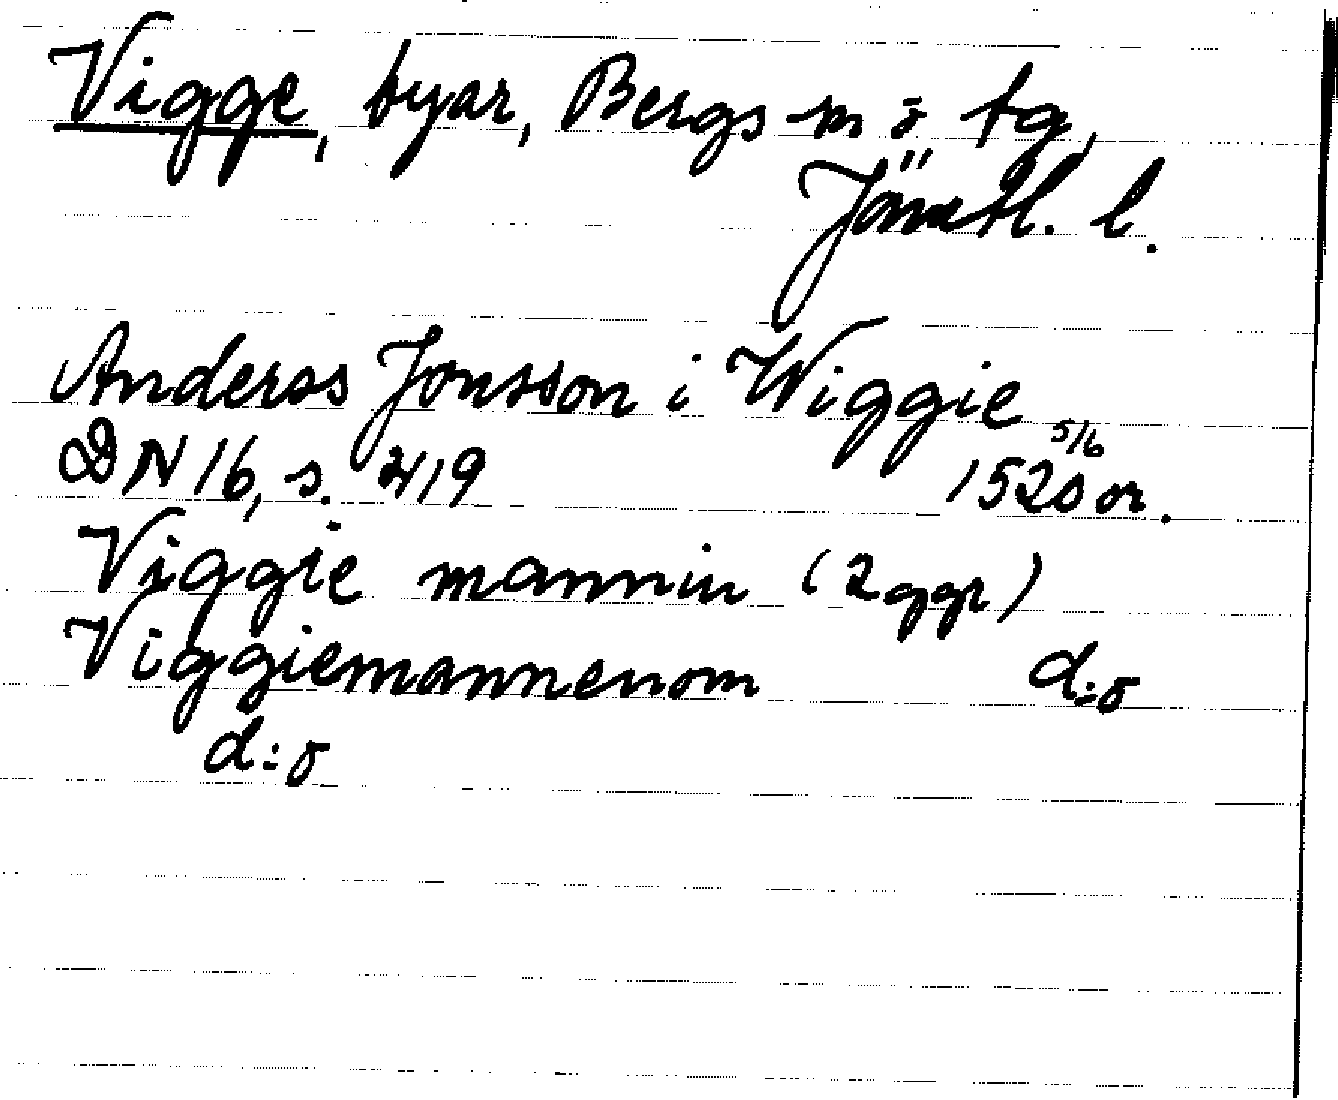 Vigge, byar, Bergs sn o tg,
Jämtl. l.
Anderss Jonsson i Wiggie
DN 16, s. 419 5/6 1528 or.
Viggie mannin (2 ggr)
Viggiemannenom d:o
d:o